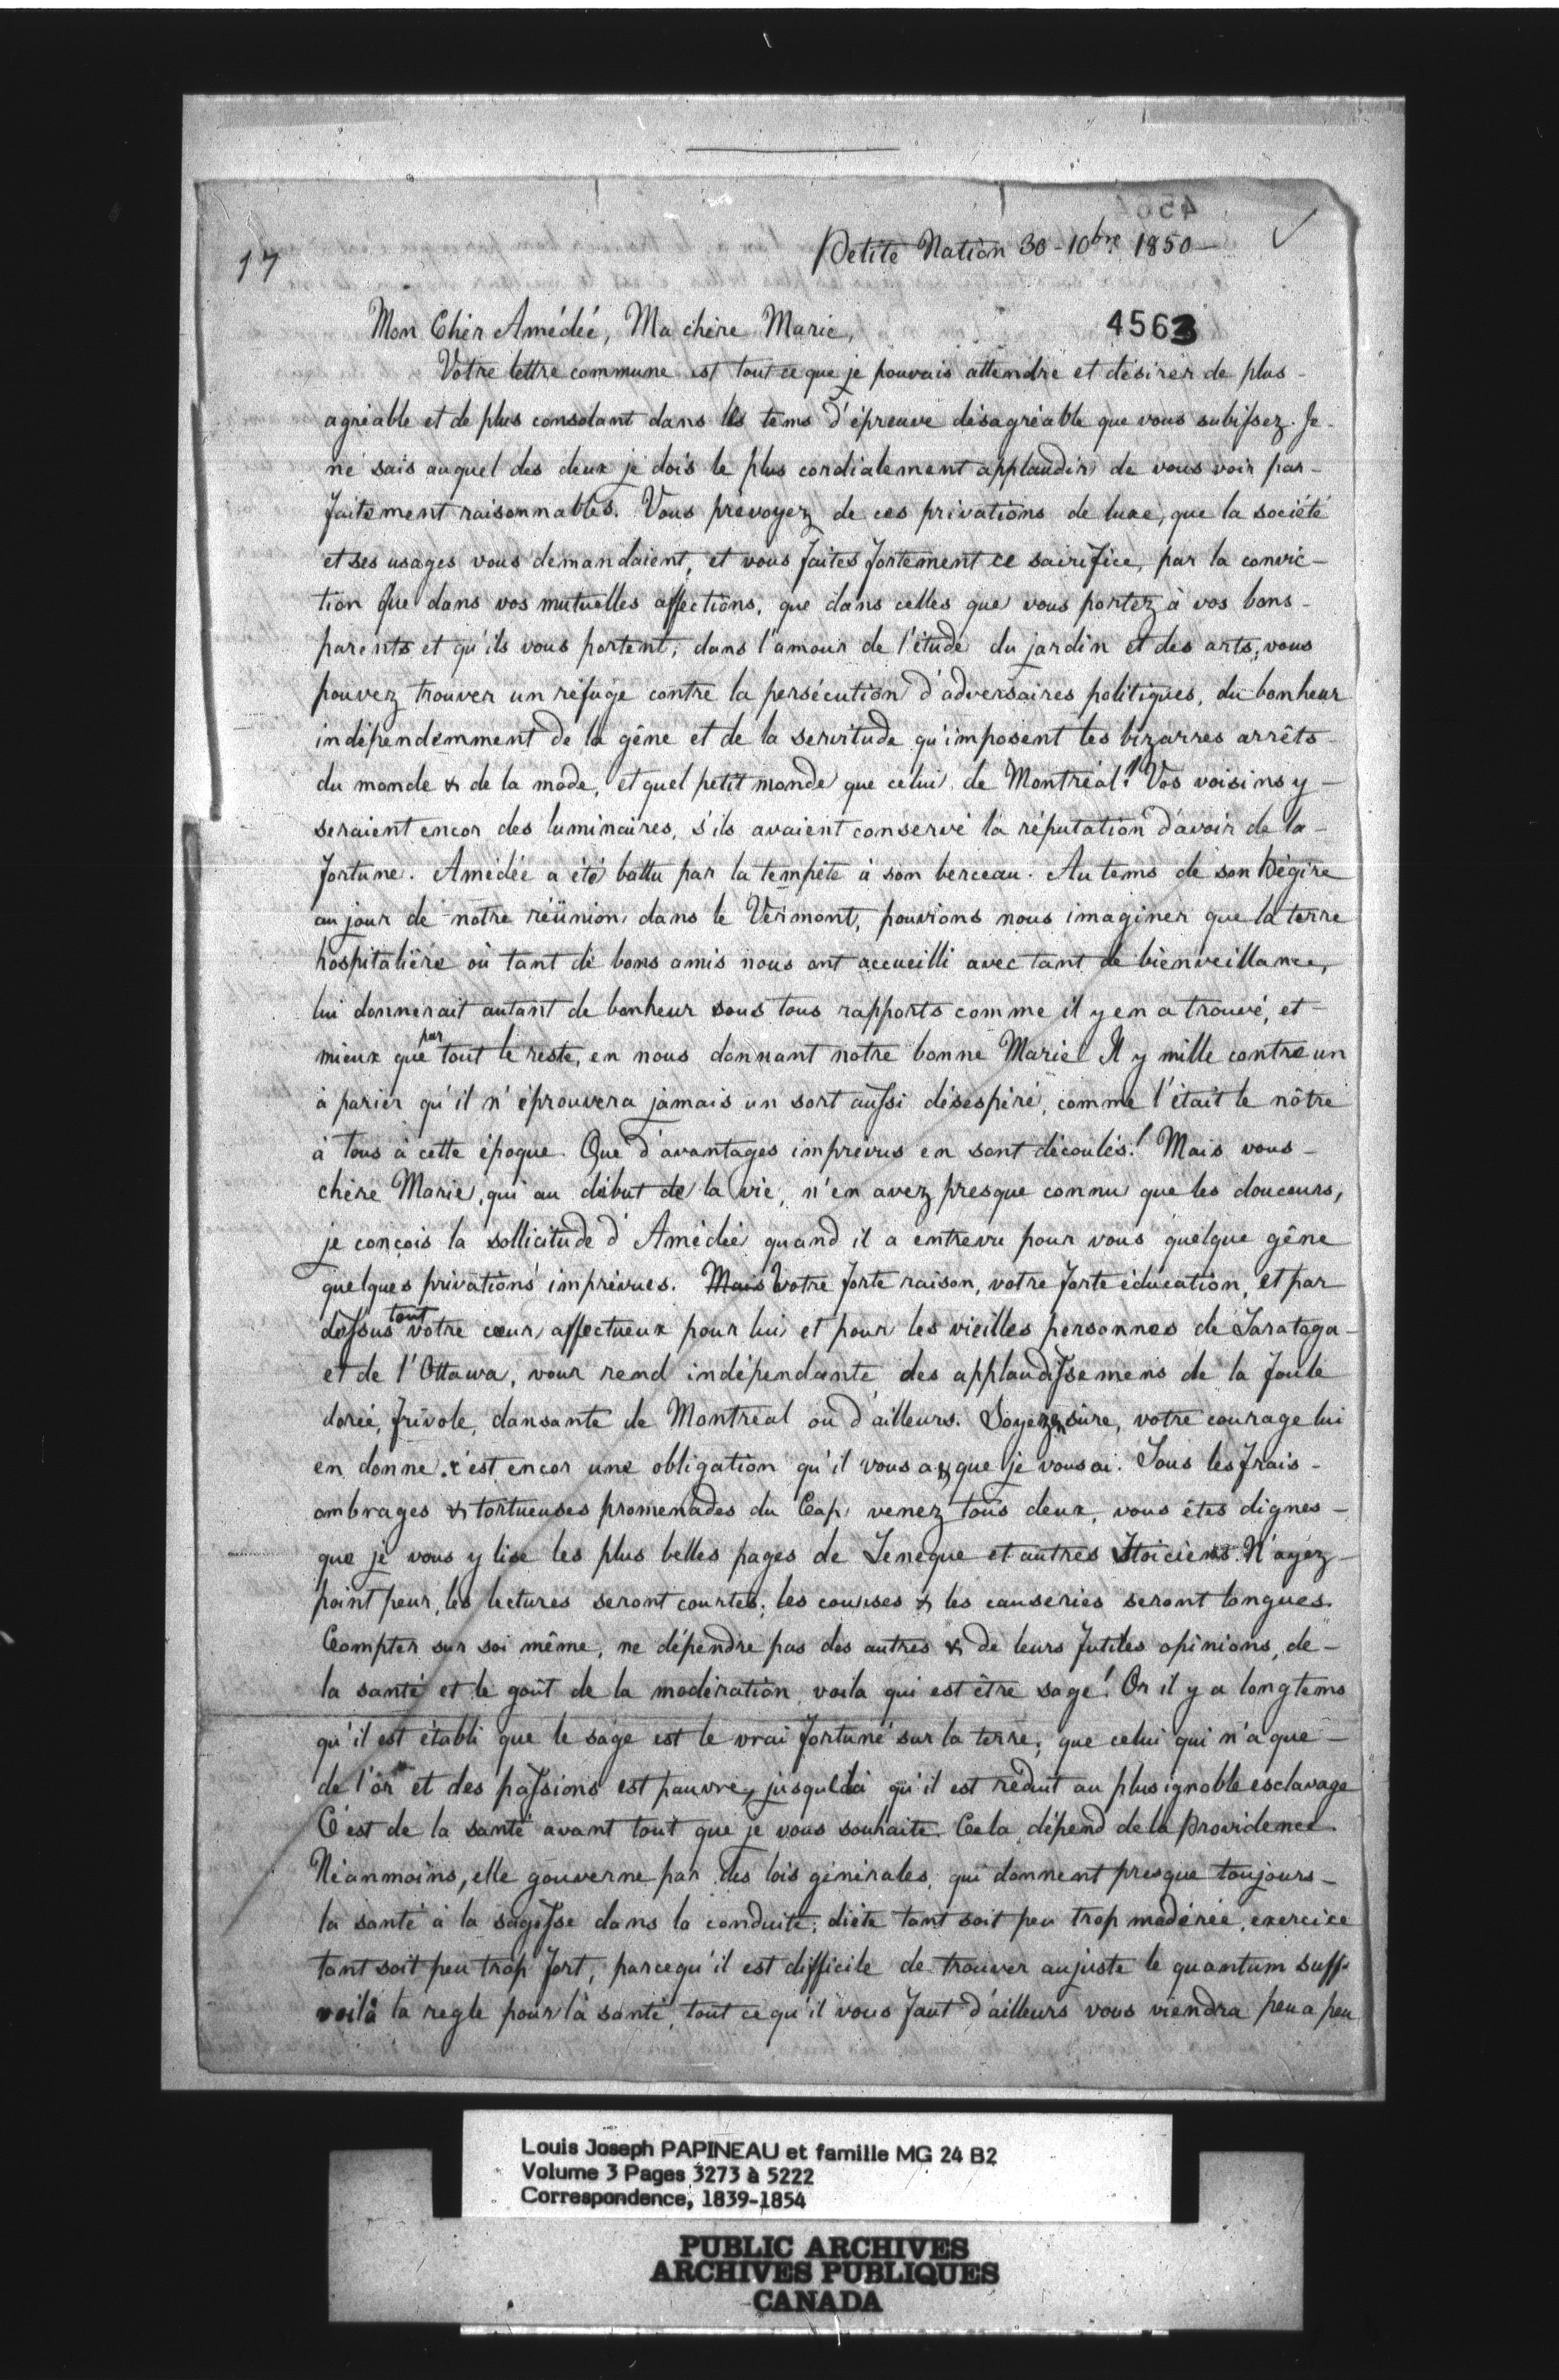 4564
17
Petite Nation 30-10bre 1850
4563
Mon Cher Amédée, Ma chère Marie,
Votre lettre commune est tout ce que je pouvais attendre et désirer de plus-
agréable et de plus consolant dans les tems d'épreuve désagréable que vous subissez. Je-
ne sais auquel des deux je dois le plus cordialement applaudir de vous voir par-
faitement raisonnables. Vous prévoyez de ces privations de luxe, que la société
et ses usages vous demandaient, et vous faites fortement ce sacrifice, par la convic-
tion que dans vos mutuelles affections, que dans celles que vous portez à vos bons-
parents et qu'ils vous portent, dans l'amour de l'étude du jardin et des arts, vous
pouvez trouver un réfuge contre la persécution d'adversaires politiques, du bonheur
indépendemment de la gêne et de la servitude qu'imposent les bizarres arrêts
du monde & de la mode, et quel petit monde que celui de Montréal! Vos voisins y-
seraient encor des luminaires, s'ils avaient conservé la réputation d'avoir de la-
fortune. Amédée a été battu par la tempête à son berceau. Au tems de son Hégire
au jour de notre réünion dans le Vermont, pouvions nous imaginer que la terre
hospitalière où tant de bons amis nous ont accueilli avec tant de bienveillance,
lui donnerait autant de bonheur sous tous rapports comme il y en a trouvé, et-
mieux que par tout le reste, en nous donnant notre bonne Marie! Il y mille contre un
à parier qu'il n'éprouvera jamais un sort aussi désespéré, comme l'était le nôtre
à tous à cette époque. Que d'avantages imprévus en sont découlés! Mais vous-
chère Marie, qui au début de la vie, n'en avez presque connu que les douceurs,
je conçois la sollicitude d'Amédée quand il a entrevu pour vous quelque gêne
quelques privations imprévues. Mais Votre forte raison, votre forte éducation, et par
dessus tout votre cœur affectueux pour lui et pour les vieilles personnes de Saratoga-
et de l'Ottawa, vour rend indépendante des applaudissemens de la foule
dorée, frivole, dansante de Montréal ou d'ailleurs. Soyez en sûre, votre courage lui
en donne. c'est encor une obligation qu'il vous a & que je vous ai. Sous les frais-
ombrages & tortueuses promenades du Cap venez tous deux, vous êtes dignes-
que je vous y lise les plus belles pages de Seneque et autres Stoiciens. N'ayez-
point peur, les lectures seront courtes, les courses & les causeries seront longues.
Compter sur soi même, ne dépendre pas des autres & de leurs futiles opinions, de-
la santé et le goût de la modération, voila qui est être sage! Or il y a longtems
qu'il est établi que le sage est le vrai fortuné sur la terre, que celui qui n'a que-
de l'or et des passions est pauvre, jusque là qu'il est réduit au plus ignoble esclavage
C'est de la santé avant tout que je vous souhaite. Cela dépend de la Providence.
Néanmoins, elle gouverne par des lois générales, qui donnent presque toujours-
la santé à la sagesse dans la conduite; diète tant soit peu trop modérée, exercice
tant soit peu trop fort, parcequ'il est difficile de trouver au juste le quantum suff.
voilà la regle pour la santé, tout ce qu'il vous faut d'ailleurs vous viendra peu a peu
Louis Joseph PAPINEAU et famille MG 24 B2
Volume 3 Pages 3273 à 5222
Correspondence, 1839-1854
PUBLIC ARCHIVES
ARCHIVES PUBLIQUES
CANADA